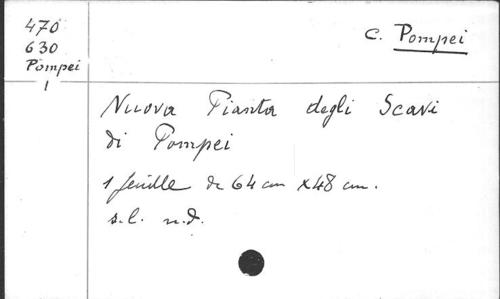 470
630
Pompei
1
C. Pompei
Nuova Pianta degli Scavi
di Pompei
1 feuille de 64 cm x 48 cm.
s.l. n.d.